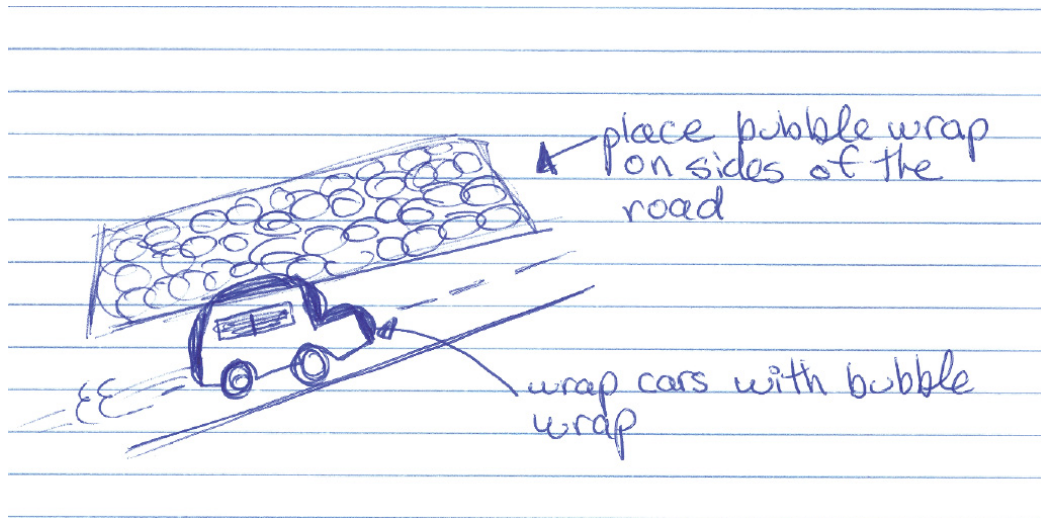 place bubble wrap
on sides of the
road
wrap cars with bubble
wrap